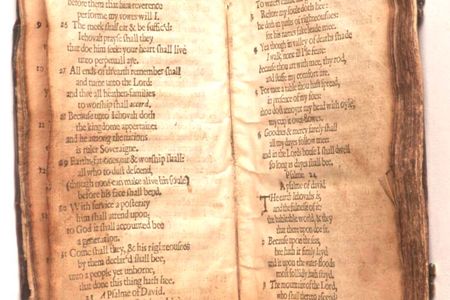 before them that him reverence
performe my vowes will I.
26 The meek shall eat & be suffic'd:
Iehovah prayse shall they
that doe him seek: your heart shall live
unto perpetuall aye.
27 All ends of th'earth remember shall
and turne unto the Lord:
and thee all heathen-families
to worship shall accord.
28 Because unto Iehovah doth
the kingdome appertaine:
and he among the nations
is ruler Soveraigne.
29 Earths-fat-ones, eat & worship shall:
all who to dust descend,
(though none can make alive his soule)
before his face shall bend.
30 With service a posterity
him shall attend upon;
to God it shall accounted bee
a generation.
31 Come shall they, & his righteousnes
by them declar'd shall bee,
unto a people yet unborne,
that done this thing hath hee.
A Psalme of David.
3 Restore my soule doth hee:
he doth in paths of righteousnes:
for his names sake leade mee.
4 Yea though in valley of deaths shade
I walk, none ill I'le feare:
because thou art with mee, thy rod,
and staffe my comfort are.
5 For mee a table thou hast spread,
in presence of my foes:
thou dost annoynt my head with oyle,
my cup it over-flowes.
6 Goodnes & mercy surely shall
all my dayes follow mee:
and in the Lords house I shall dwell
so long as dayes shall bee.
Psalme 24
A psalme of david.
The earth Iehovahs is,
and the fulnesse of it:
the habitable world, & they
that there upon doe sit.
2 Because upon the seas,
hee hath it firmly layd:
and it upon the water-floods
most sollidly hath stayd.
3 The mountaine of the Lord,
who shall thereto ascend